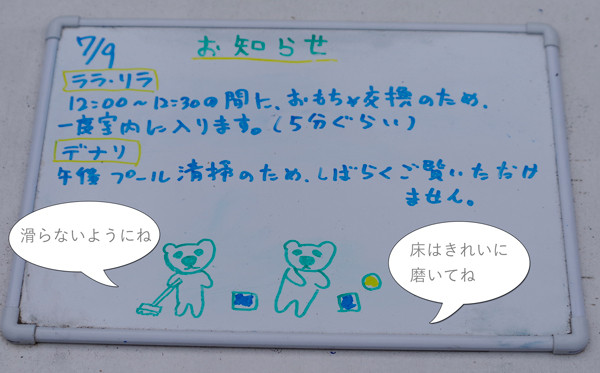 7/9
お知らせ
ララ・リラ
12:00〜12:30の間に、おもちゃ交換のため、
一度室内に入ります。(5分ぐらい)
デナリ
午後プール清掃のため、しばらくご覧いただけ
ません。
滑らないようにね
床はきれいに
磨いてね